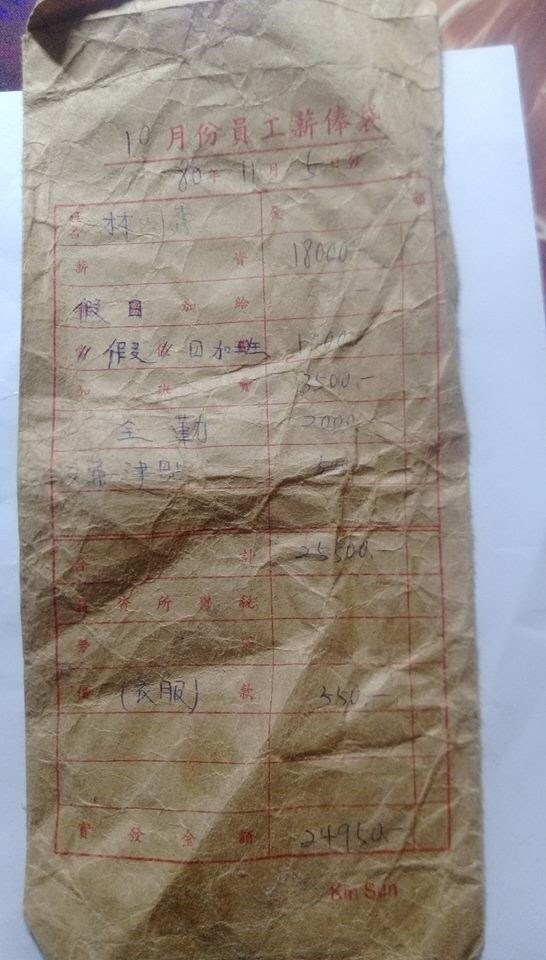 10月份員工薪俸袋
80年11月5日
姓名 林 金 額
薪資 18000.-
假日加給
假 日加班
加班費 3500.-
全勤 2000.-
津貼
合計 25500.-
薪資所得稅
勞
借(衣服)款 550.-
實發金額 24950.-
Kin Sun